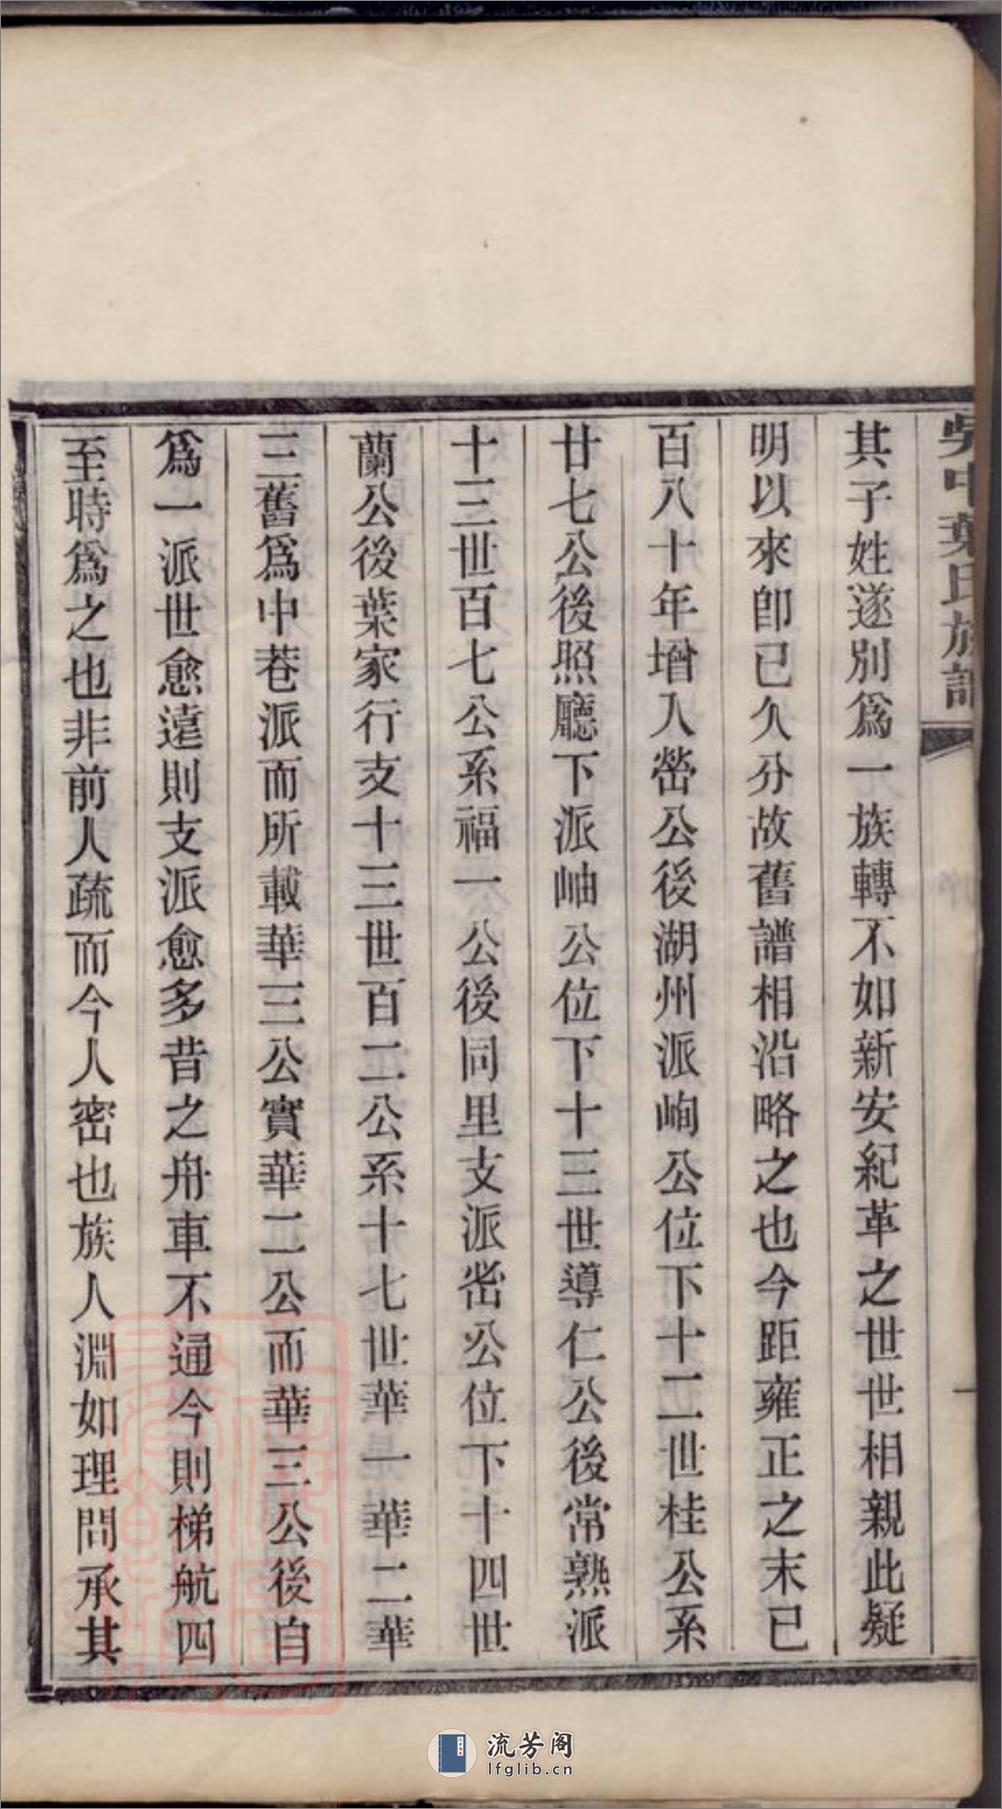 吳中葉氏族譜
其子姓遂別爲一族轉不如新安紀革之世世相親此疑
明以來卽已久分故舊譜相沿略之也今距雍正之末已
百八十年增入嵤公後湖州派峋公位下十二世桂公系
廿七公後照廳下派岫公位下十三世導仁公後常熟派
十三世百七公系福一公後同里支派峃公位下十四世
蘭公後葉家行支十三世百二公系十七世華一華二華
三舊爲中巷派而所載華三公實華二公而華三公後自
爲一派世愈遠則支派愈多昔之舟車不通今則梯航四
至時爲之也非前人疏而今人密也族人淵如理問承其
流芳阁
lfglib.cn